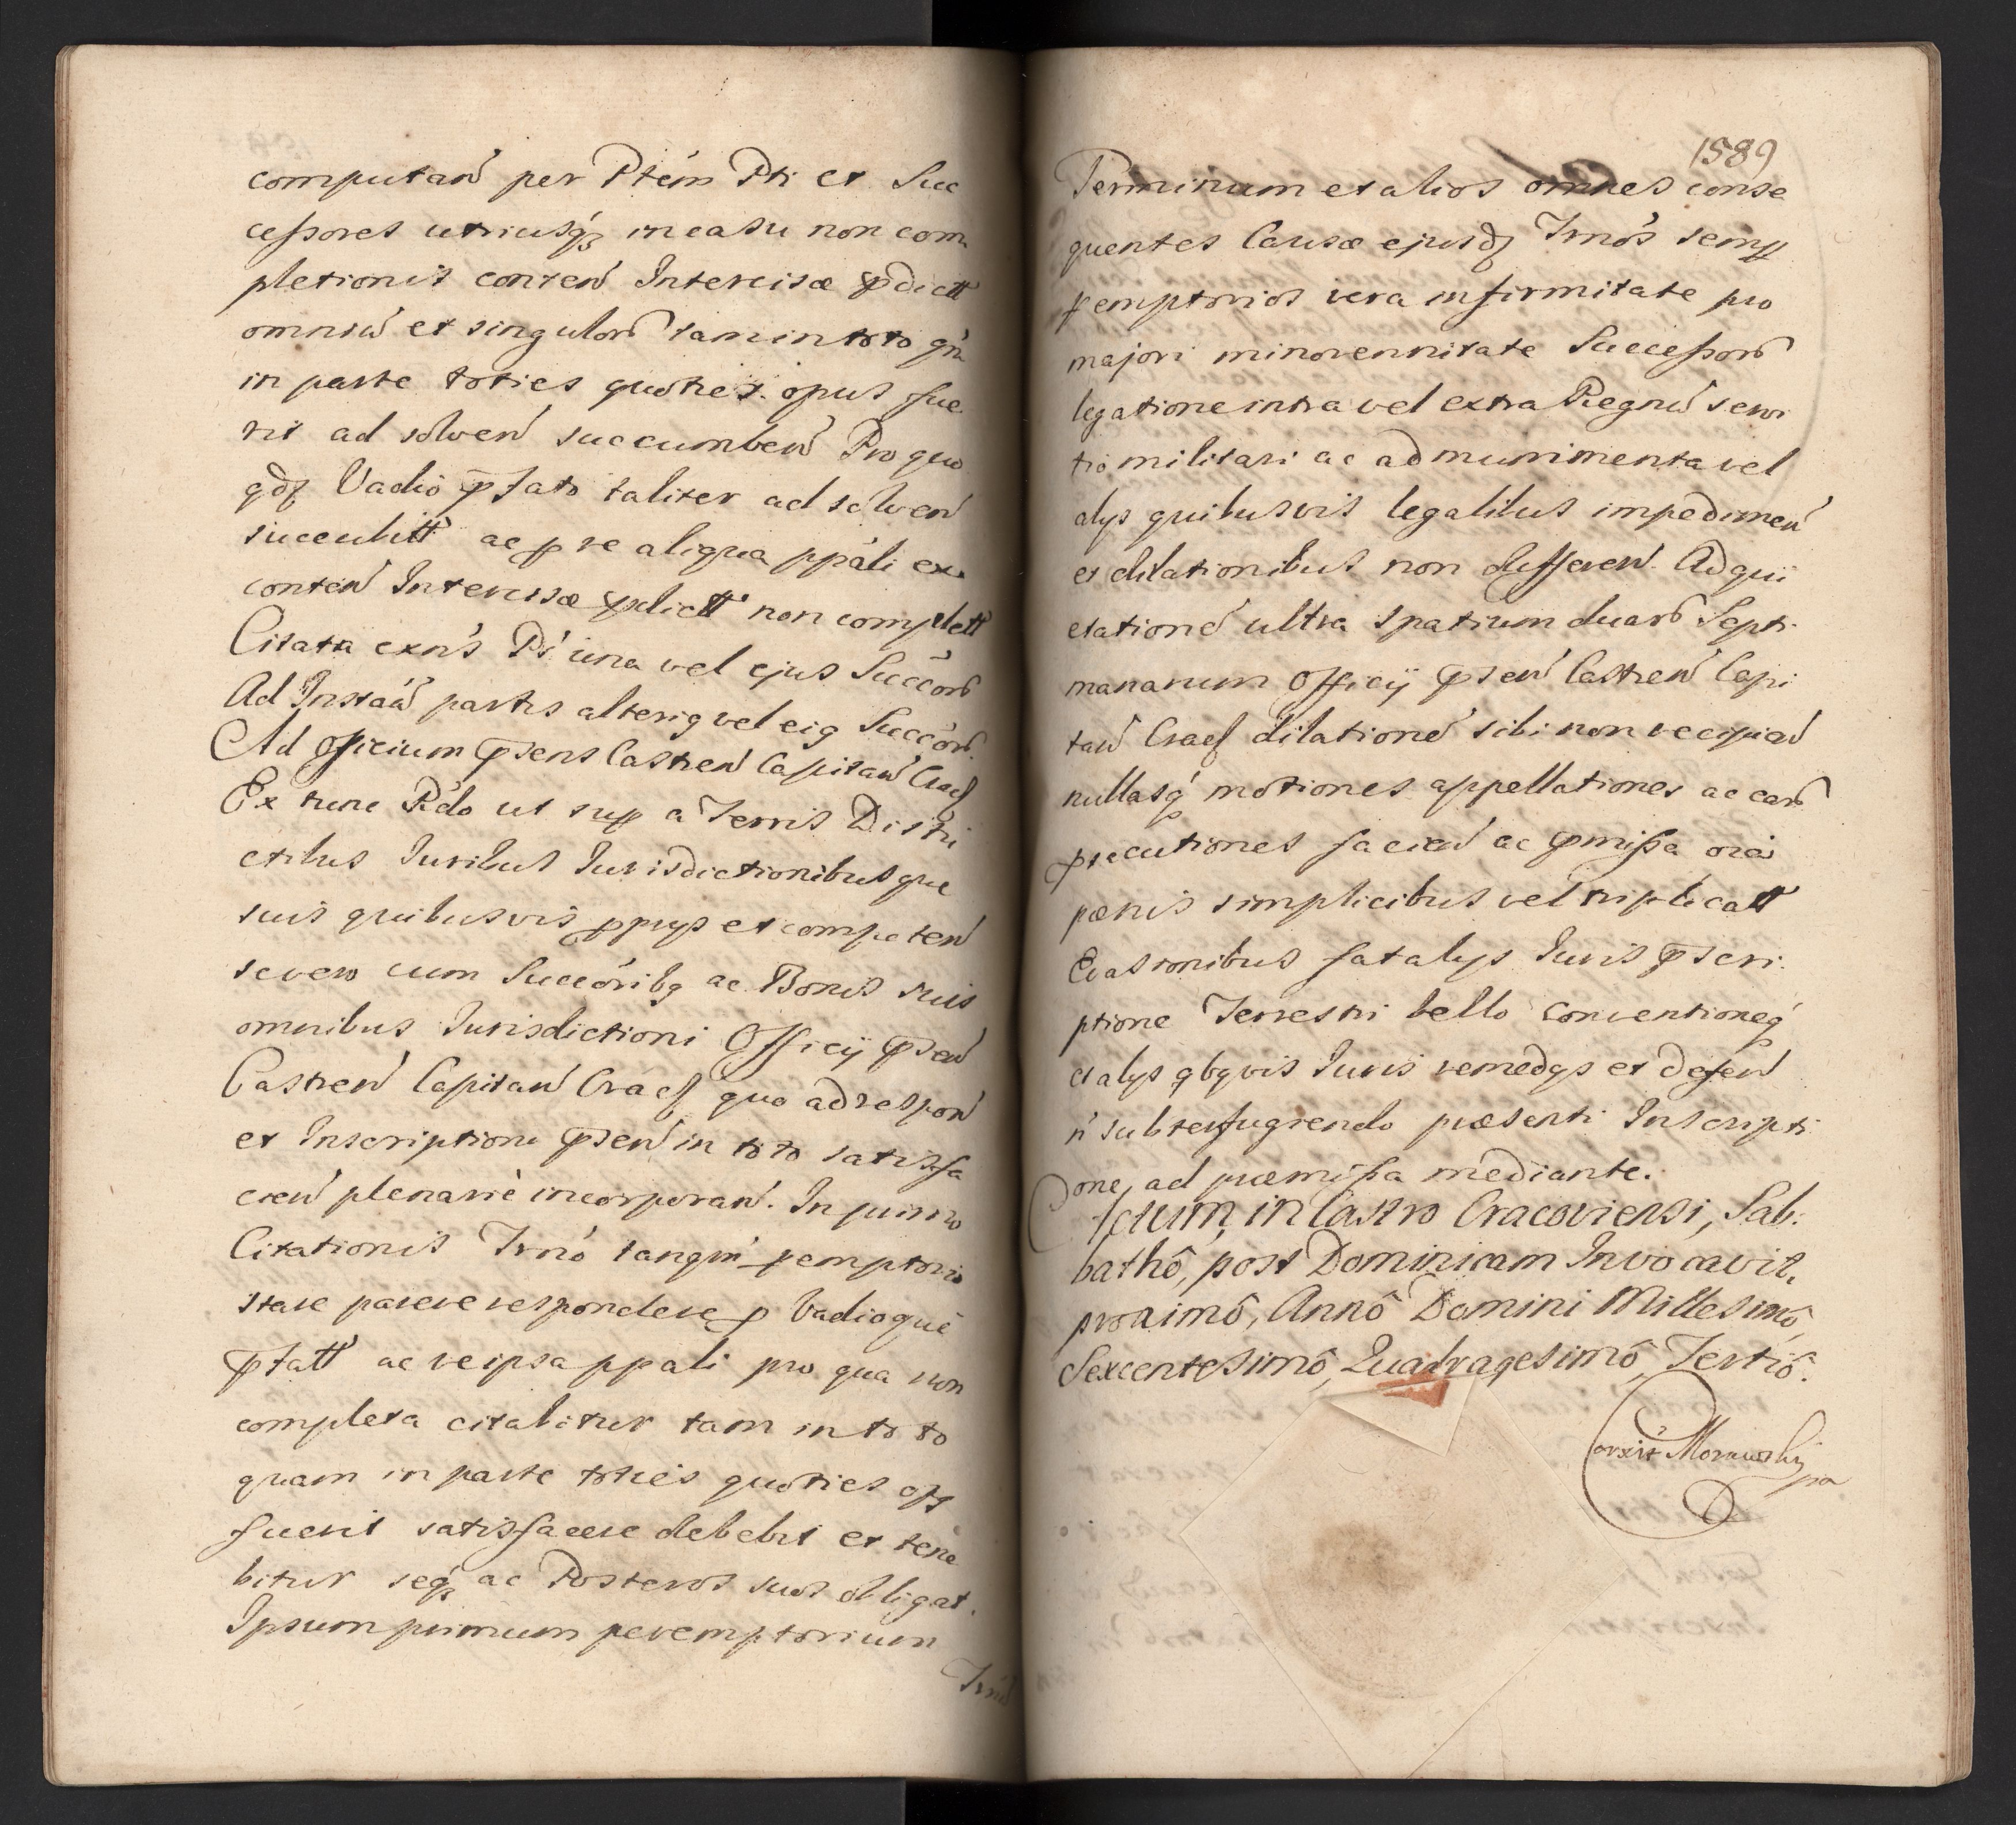 computań per Ptém Pti et Suc
cessores utriusq₃ in casu non com
pletionis conteń Intercisæ p̱dictt
omniú et singuloró tam in toto qm̄
in parte toties quoties opus fue
rit ad solveń succumbeń Pro quo
qd₃ Vadio p̱fato taliter ad solveń
succubitt ac p̱ re aliqua ppáli ex
conteń Intercisæ p̱dictt non complett
Citata exńs Ps una vel ejus Succóró
Ad Instáń partis alteriq vel eiq Succóró
Ad Officium p̱sens Castreń Capitań Cracł
Ex tunc Rdo ut supp a Terris Distri
ctibus Juribus Jurisdictionibusque
suis quibusvis p̱prijs et competeń
severo cum Succóribq ac Bonis suis
omnibus Jurisdictioni Officij p̱seń
Castreń Capitań Cracł quo ad respoń
et Inscriptioni p̱seń in toto satisfa
cień plenariè incorporań. In primo
Citationis Trnó tanqm̄ p̱emptorio
stare parere respondere p̱ Vadioque
p̱fatt ac re ipsa ppali pro qua non
completa citabitur tam in toto
quam in parte toties quoties op₉
fuerit satisfacere debebit et tene
bitur seq₃ ac Posteros suos obligat.
Ipsum primum peremptorium
Trnú
1589
Terminum et alios omnes conse
quentes Causæ ejusd₃ Trnós semp̱
p̱emptorios vera infirmitate pro
majori minorennitate Successoró
legatione intra vel extra Regnú servi
tio militari ac ad munimenta vel
alijs quibusvis legalibus impedimeń
et dilationibus non differeń. Ad qui
etationé ultra spatium duaró Septi
manarum Officij p̱seń Castreń Capi
tań Cracł dilationé sibi non recipień
nullasq́ motiones appellationes ac earó
p̱secutiones facień ac p̱missa oia
pœnis simplicibus vel triplicatt
Evasionibus fatalijs Juris p̱scri
ptione Terrestri bello conventioneq́
et alijs qbqvis Juris remedijs et defeń
ń subterfugiendo præsenti Inscripti
one, ad præmissa mediante.
Actum, in Castro Cracoviensi, Sab:
bathô, post Dominicam Invocavit,
proximô, Annô Domini Millesimô,
Sexcentesimô, Quadragesimô, Tertiô.
Corxit